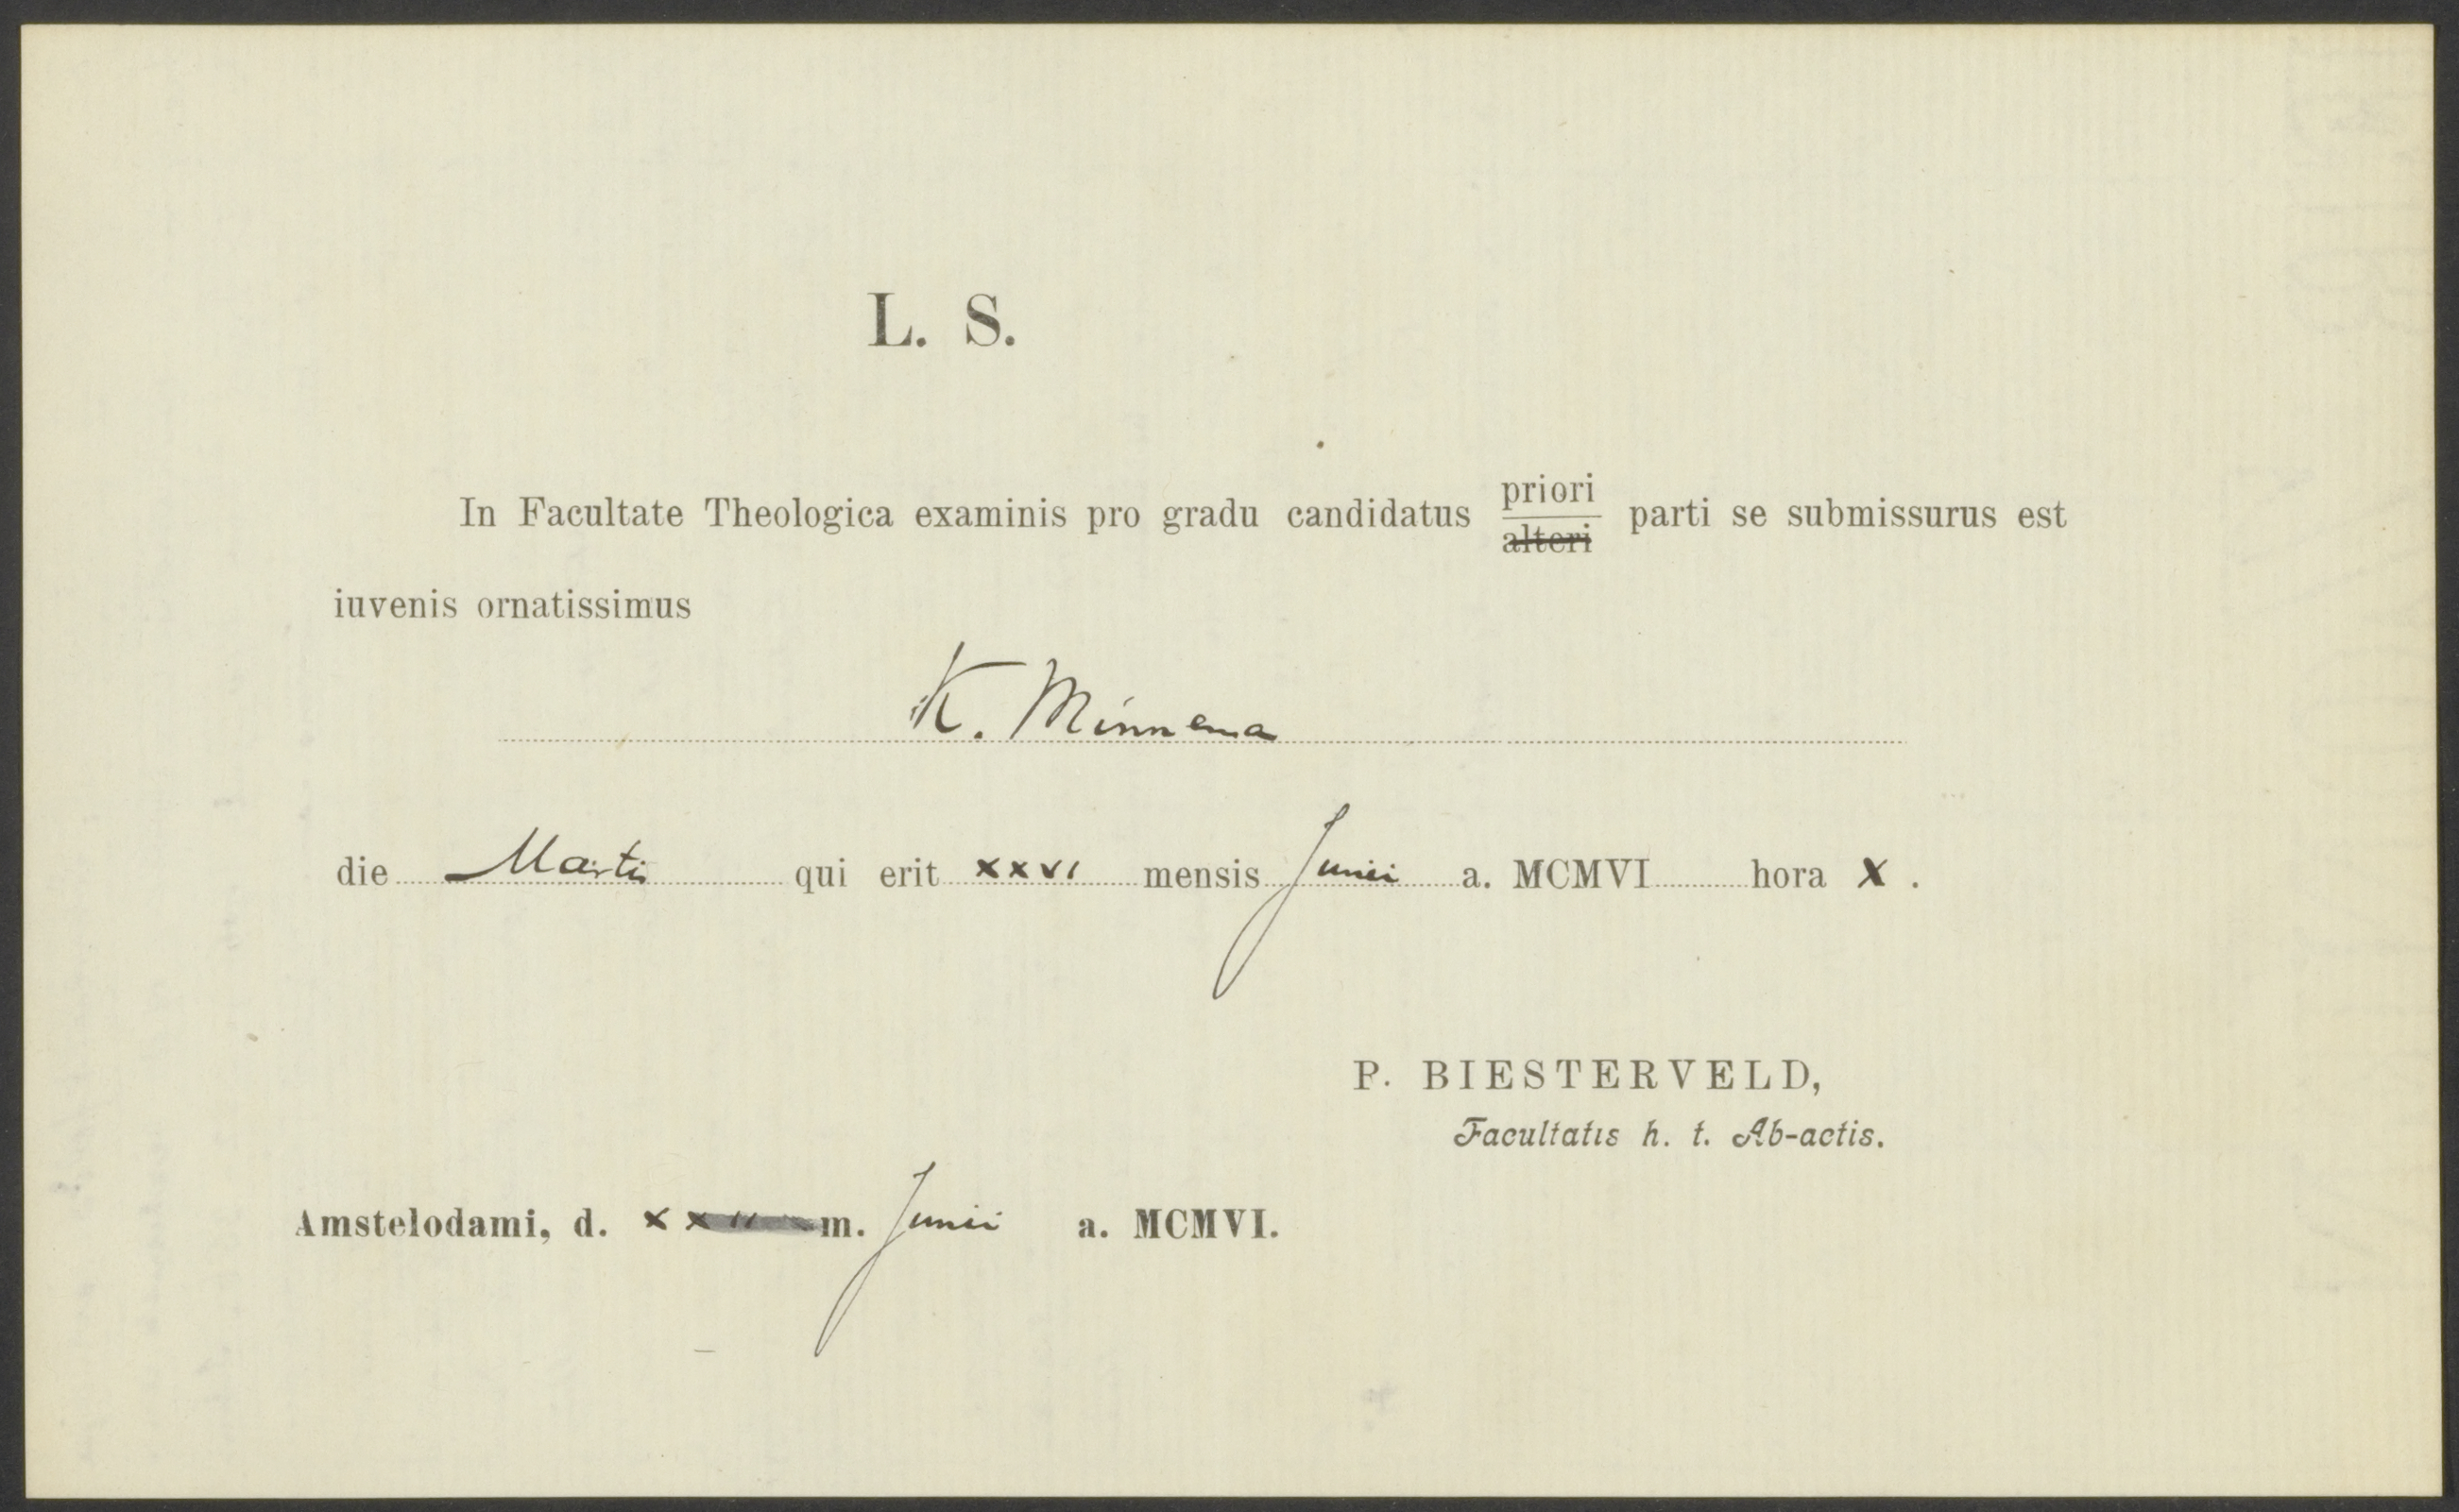 L. S.
In Facultate Theologica examinis pro gradu candidatus priori alteri parti se submissurus est
iuvenis ornatissimus
K. Minnema
die Martis qui erit xxvi mensis Junii a. MCMVI hora X.
P. BIESTERVELD,
Facultatis h. t. Ab-actis.
Amstelodami, d. m. Junii a. MCMVI.